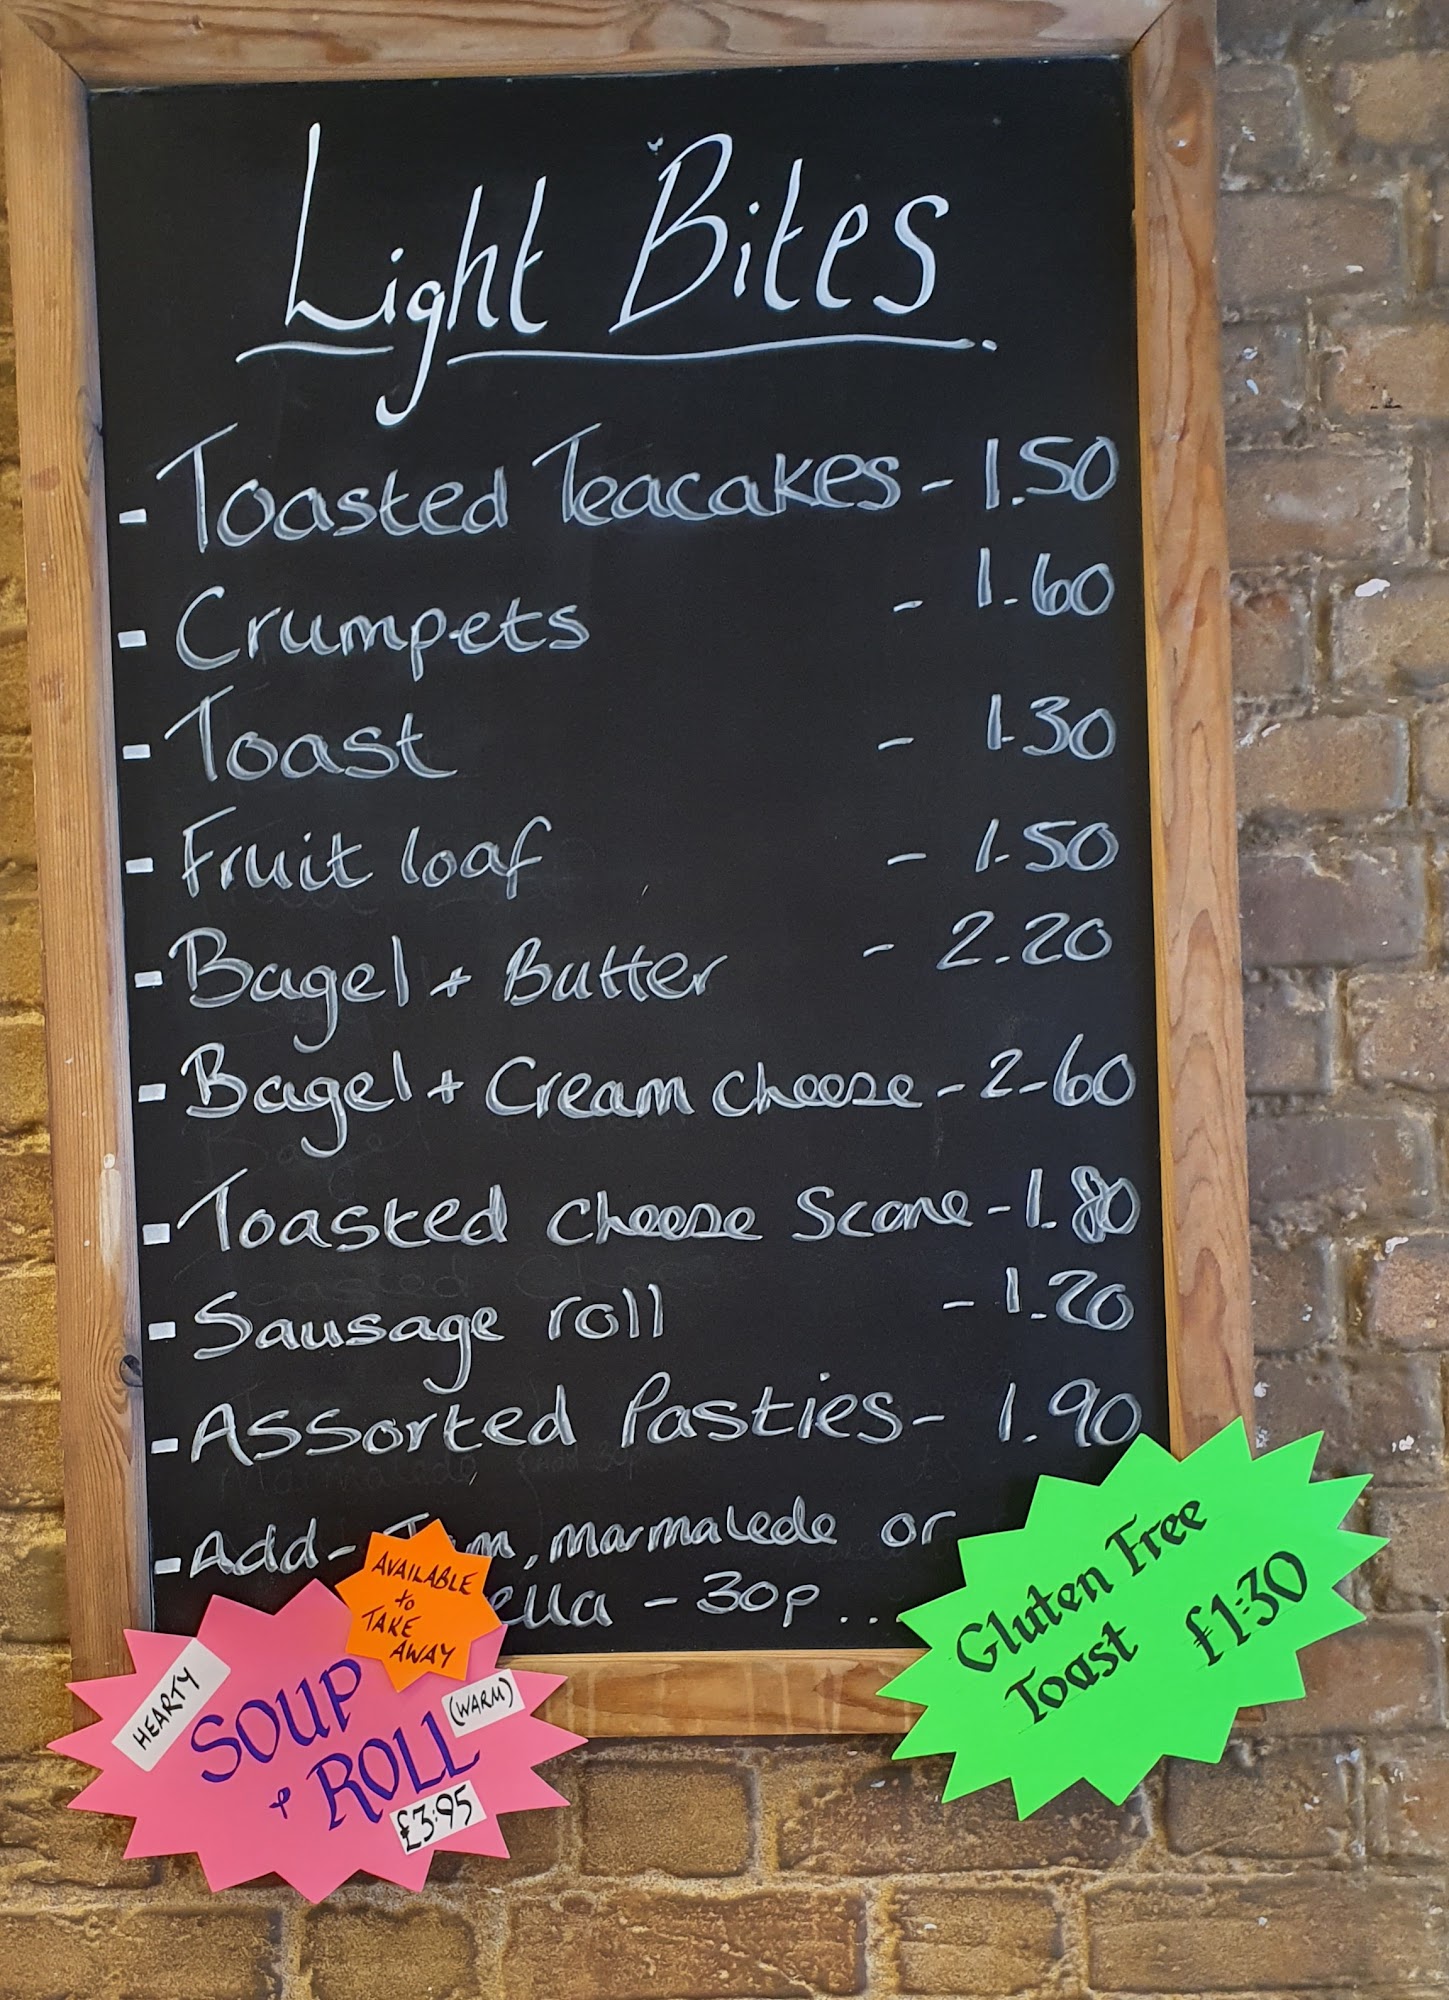 Light Bites.
- Toasted Teacakes - 1.50
- Crumpets - 1.60
- Toast - 1.30
- Fruit loaf - 1.50
- Bagel + Butter - 2.20
- Bagel + Cream cheese - 2.60
- Toasted cheese Scone - 1.80
- Sausage roll - 1.20
- Assorted Pasties - 1.90
- Add - Jam, marmalede or
ella - 30p...
AVAILABLE
to
TAKE
AWAY
HEARTY
SOUP
+ ROLL
(WARM)
£3.95
Gluten Free
Toast £1:30